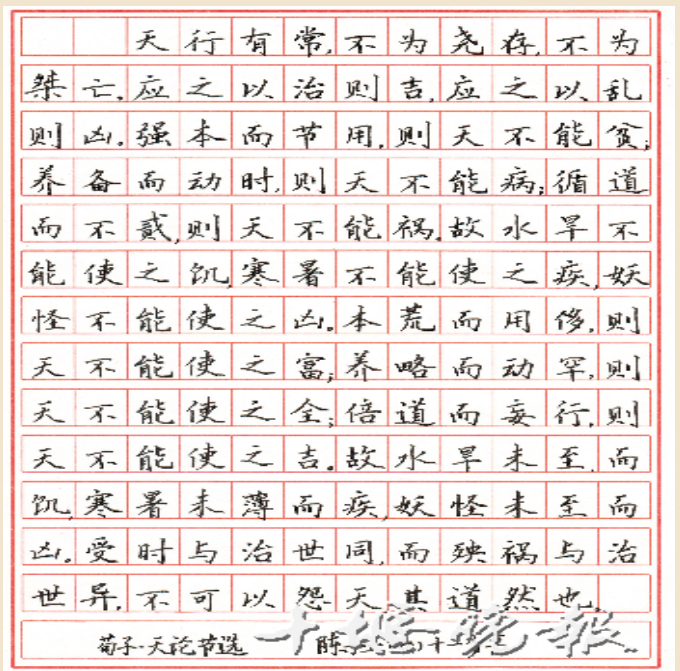 天行有常,不为尧存,不为
桀亡。应之以治则吉,应之以乱
则凶。强本而节用,则天不能贫;
养备而动时,则天不能病;循道
而不贰,则天不能祸。故水旱不
能使之饥,寒暑不能使之疾,妖
怪不能使之凶。本荒而用侈,则
天不能使之富;养略而动罕,则
天不能使之全;倍道而妄行,则
天不能使之吉。故水旱未至,而
饥,寒暑未薄而疾,妖怪未至而
凶。受时与治世同,而殃祸与治
世异,不可以怨天,其道然也
荀子·天论节选 陈
十堰晚报